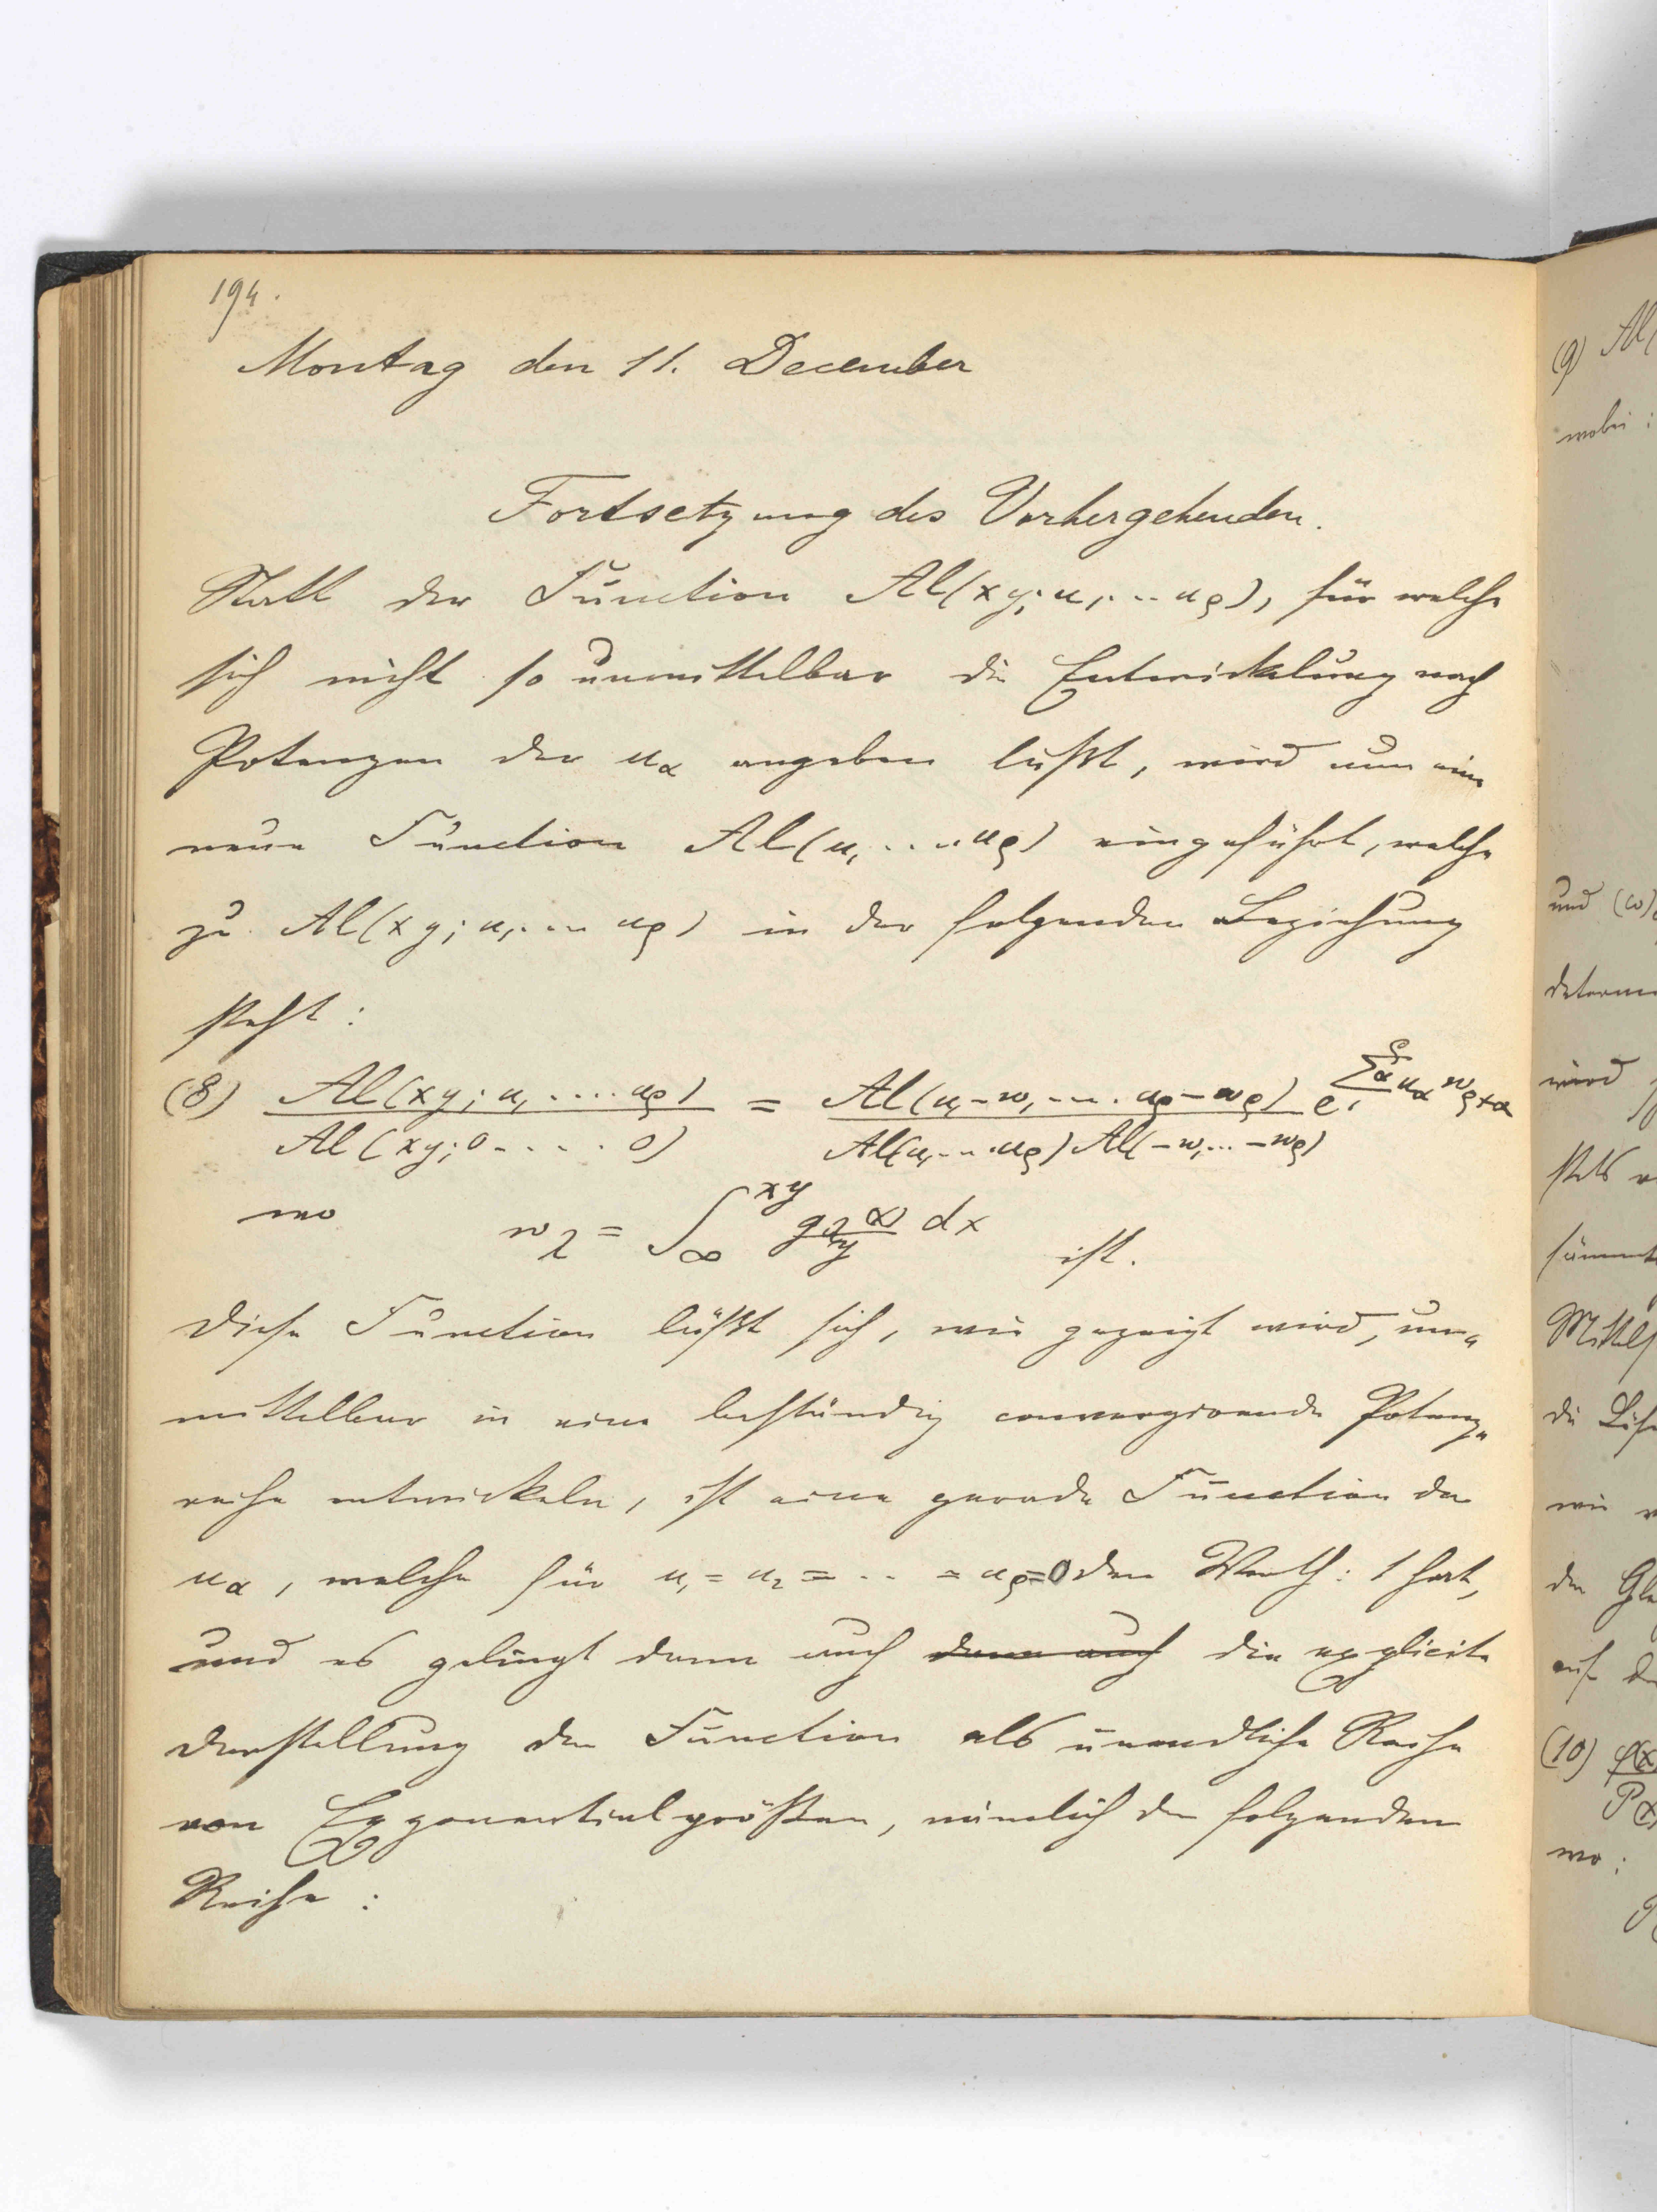 194.
Montag den 11. December
Fortsetzung des Vorhergehenden.
Statt der Function Al(xy; u₁, ... uρ), für welche
sich nicht so unmittelbar die Entwickelung nach
Potenzen der uα angeben läßt, wird nun eine
neue Function Al(u₁ .... uρ) eingeführt, welche
zu Al(xy; u₁, ... uρ) in der folgenden Beziehung
steht:
(8) Al(xy; u₁ .... uρ) / Al(xy; 0 ..... 0) = Al(u₁-w₁ .... uρ-wρ) / Al(u₁ .... uρ) Al(-w₁ ... -wρ) e^{∑_{α=1}^{ρ} uα wρ+α}
wo wλ = ∫_∞^{xy} g(x)λ/y dx ist.
Diese Function läßt sich, wie gezeigt wird, un-
mittelbar in eine beständig convergirende Potenz-
reihe entwickeln, ist eine gerade Function der
uα, welche für u₁ = u₂ = .. = uρ = 0 den Werth: 1 hat,
und es gelingt dann auch dann auch die explicite
Darstellung der Function als unendliche Reihe
von Exponentialgrößen, nämlich der folgenden
Reihe:
(9) Al(
wobei:
und (ω)
determi
wird
stets
sämmt
Mittels
die
wie
der Gle
auf
(10) φ(x
P(x
wo: